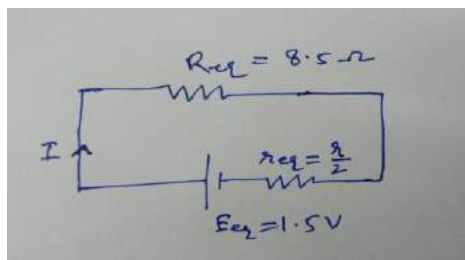 Req = 8.5 Ω
I
req = r/2
Eeq = 1.5 V